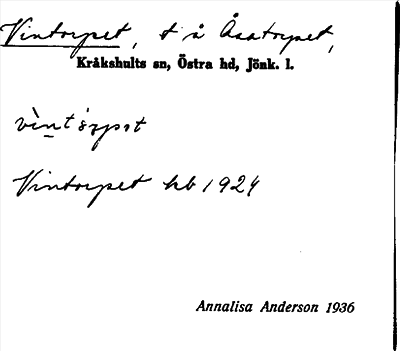 Vintorpet, t å Åsatorpet,
Kråkshults sn, Östra hd, Jönk. l.
Vintorpet hb 1924
Annalisa Anderson 1936